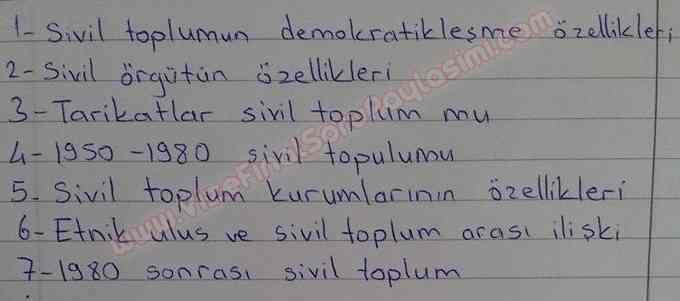 1- Sivil toplumun demokratikleşme özellikleri
2- Sivil örgütün özellikleri
3- Tarikatlar sivil toplum mu
4- 1950 - 1980 sivil topulumu
5- Sivil toplum kurumlarının özellikleri
6- Etnik ulus ve sivil toplum arası ilişki
7- 1980 sonrası sivil toplum
www.VizeFinalSoruPaylasimi.com